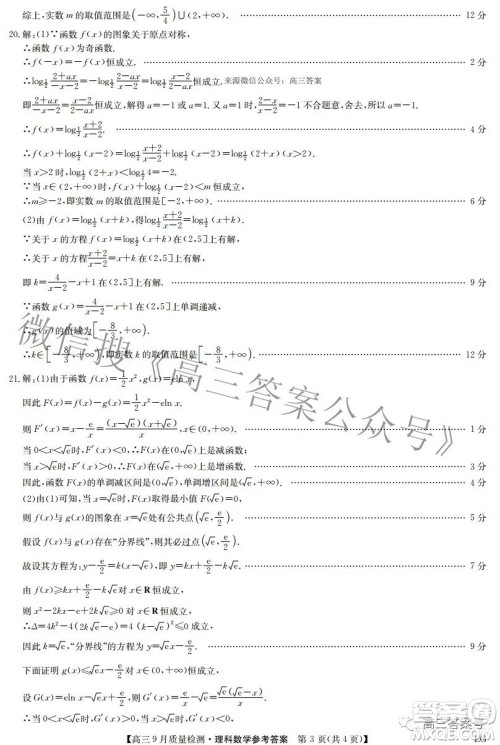 综上,实数 m 的取值范围是(−∞,5/4)∪(2,+∞). 12 分
20.解:(1)∵函数 f(x)的图象关于原点对称,
∴函数 f(x)为奇函数.
∴f(−x)=−f(x)恒成立. 2 分
∴log½ (2+ax)/(−x−2)=−log½ (2−ax)/(x−2)=log½ (x−2)/(2−ax)恒成立.来源微信公众号:高三答案
即(2+ax)/(−x−2)=(x−2)/(2−ax)恒成立,解得 a=−1 或 a=1.又 a=1 时,(2−x)/(x−2)=−1 不合题意,舍去,所以 a=−1.
∴f(x)=log½ (x+2)/(x−2). 4 分
∴f(x)+log½(x−2)=log½ (x+2)/(x−2)+log½(x−2)=log½(2+x)(x>2).
当 x>2 时,log½(2+x)<log½4=−2.
∵当 x∈(2,+∞)时,f(x)+log½(x−2)<m 恒成立,
∴m≥−2,即实数 m 的取值范围是[−2,+∞). 6 分
(2)由 f(x)=log½(x+k),得log½ (x+2)/(x−2)=log½(x+k).
∵关于 x 的方程 f(x)=log½(x+k)在(2,5]上有解,
∴关于 x 的方程 (x+2)/(x−2)=x+k 在(2,5]上有解.
即 k=4/(x−2)−x+1 在(2,5]上有解. 9 分
∵函数 g(x)=4/(x−2)−x+1 在(2,5]上单调递减,
∴g(x)的值域为[−8/3,+∞).
∴k∈[−8/3,+∞),即实数 k 的取值范围是[−8/3,+∞). 12 分
21.解:(1)由于函数 f(x)=1/2 x²,g(x)=eln x.
因此 F(x)=f(x)−g(x)=1/2 x²−eln x.
则 F′(x)=x−e/x=(x−√e)(x+√e)/x,x∈(0,+∞).
当 0<x<√e时,F′(x)<0,∴F(x)在(0,√e)上是减函数;
当 x>√e时,F′(x)>0,∴F(x)在(√e,+∞)上是增函数.
因此,函数 F(x)的单调减区间是(0,√e),单调增区间是(√e,+∞). 4 分
(2)由(1)可知,当 x=√e时,F(x)取得最小值 F(√e)=0,
则 f(x)与 g(x)的图象在 x=√e处有公共点(√e,e/2). 5 分
假设 f(x)与 g(x)存在“分界线”,则其必过点(√e,e/2).
故设其方程为:y−e/2=k(x−√e),即 y=kx+e/2−k√e. 7 分
由 f(x)≥kx+e/2−k√e对 x∈R恒成立,
则 x²−2kx−e+2k√e≥0 对 x∈R恒成立,
∴Δ=4k²−8k√e+4e=4(k−√e)²≤0 成立,
因此 k=√e,“分界线”的方程为 y=√e x−e/2. 9 分
下面证明 g(x)≤√e x−e/2对 x∈(0,+∞)恒成立,
设 G(x)=eln x−√e x+e/2,则 G′(x)=e/x−√e,
∴当 0<x<√e时,G′(x)>0,当 x>√e时,G′(x)<0,
【高三9月质量检测·理科数学参考答案 第3页(共4页)】
微信搜《高三答案公众号》
高三答案号